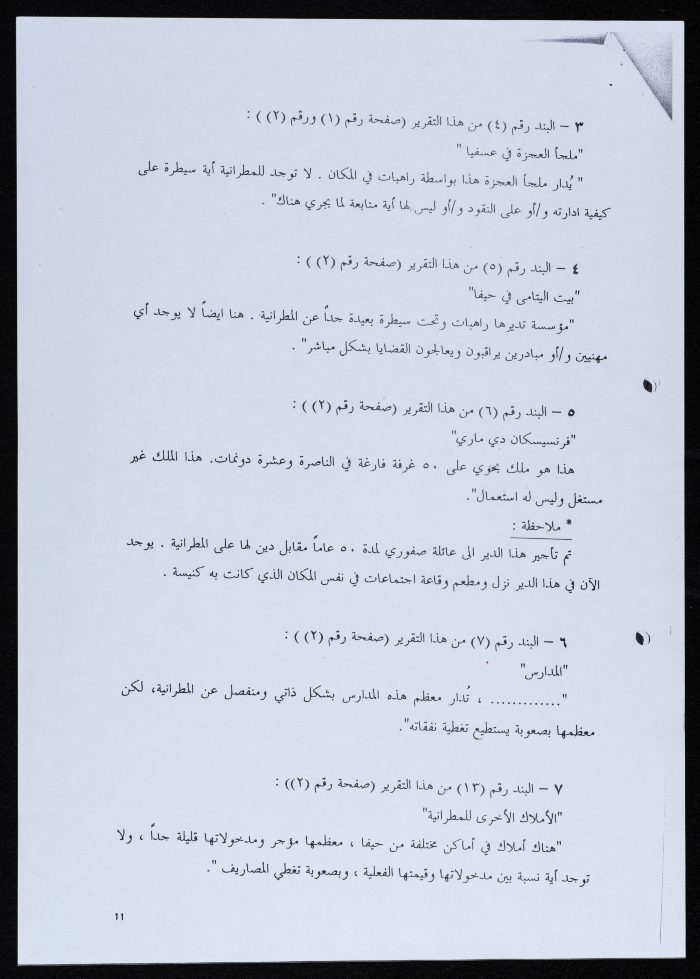 ٣ – البند رقم (٤) من هذا التقرير (صفحة رقم (١) ورقم (٢) ) :
"ملجأ العجزة في عسفيا "
" يُدار ملجأ العجزة هذا بواسطة راهبات في المكان . لا توجد للمطرانية أية سيطرة على
كيفية ادارته و/أو على النقود و/أو ليس لها أية متابعة لما يجري هناك" .
٤ – البند رقم (٥) من هذا التقرير (صفحة رقم (٢) ) :
"بيت اليتامى في حيفا"
"مؤسسة تديرها راهبات وتحت سيطرة بعيدة جداً عن المطرانية . هنا ايضاً لا يوجد أي
مهنيين و/أو مبادرين يراقبون ويعالجون القضايا بشكل مباشر" .
٥ – البند رقم (٦) من هذا التقرير (صفحة رقم (٢) ) :
"فرنسيسكان دي ماري"
هذا هو ملك يحوي على ٥٠ غرفة فارغة في الناصرة وعشرة دونمات. هذا الملك غير
مستغل وليس له استعمال".
* ملاحظة :
تم تأجير هذا الدير الى عائلة صفوري لمدة ٥٠ عاماً مقابل دين لها على المطرانية . يوجد
الآن في هذا الدير نزل ومطعم وقاعة اجتماعات في نفس المكان الذي كانت به كنيسة .
٦ – البند رقم (٧) من هذا التقرير (صفحة رقم (٢) ) :
"المدارس"
"............. ، تُدار معظم هذه المدارس بشكل ذاتي ومنفصل عن المطرانية، لكن
معظمها بصعوبة يستطيع تغطية نفقاته".
٧ – البند رقم (١٣) من هذا التقرير (صفحة رقم (٢)) :
"الأملاك الأخرى للمطرانية"
"هناك أملاك في أماكن مختلفة من حيفا ، معظمها مؤجر ومدخولاتها قليلة جداً ، ولا
توجد أية نسبة بين مدخولاتها وقيمتها الفعلية ، وبصعوبة تغطي المصاريف ".
11